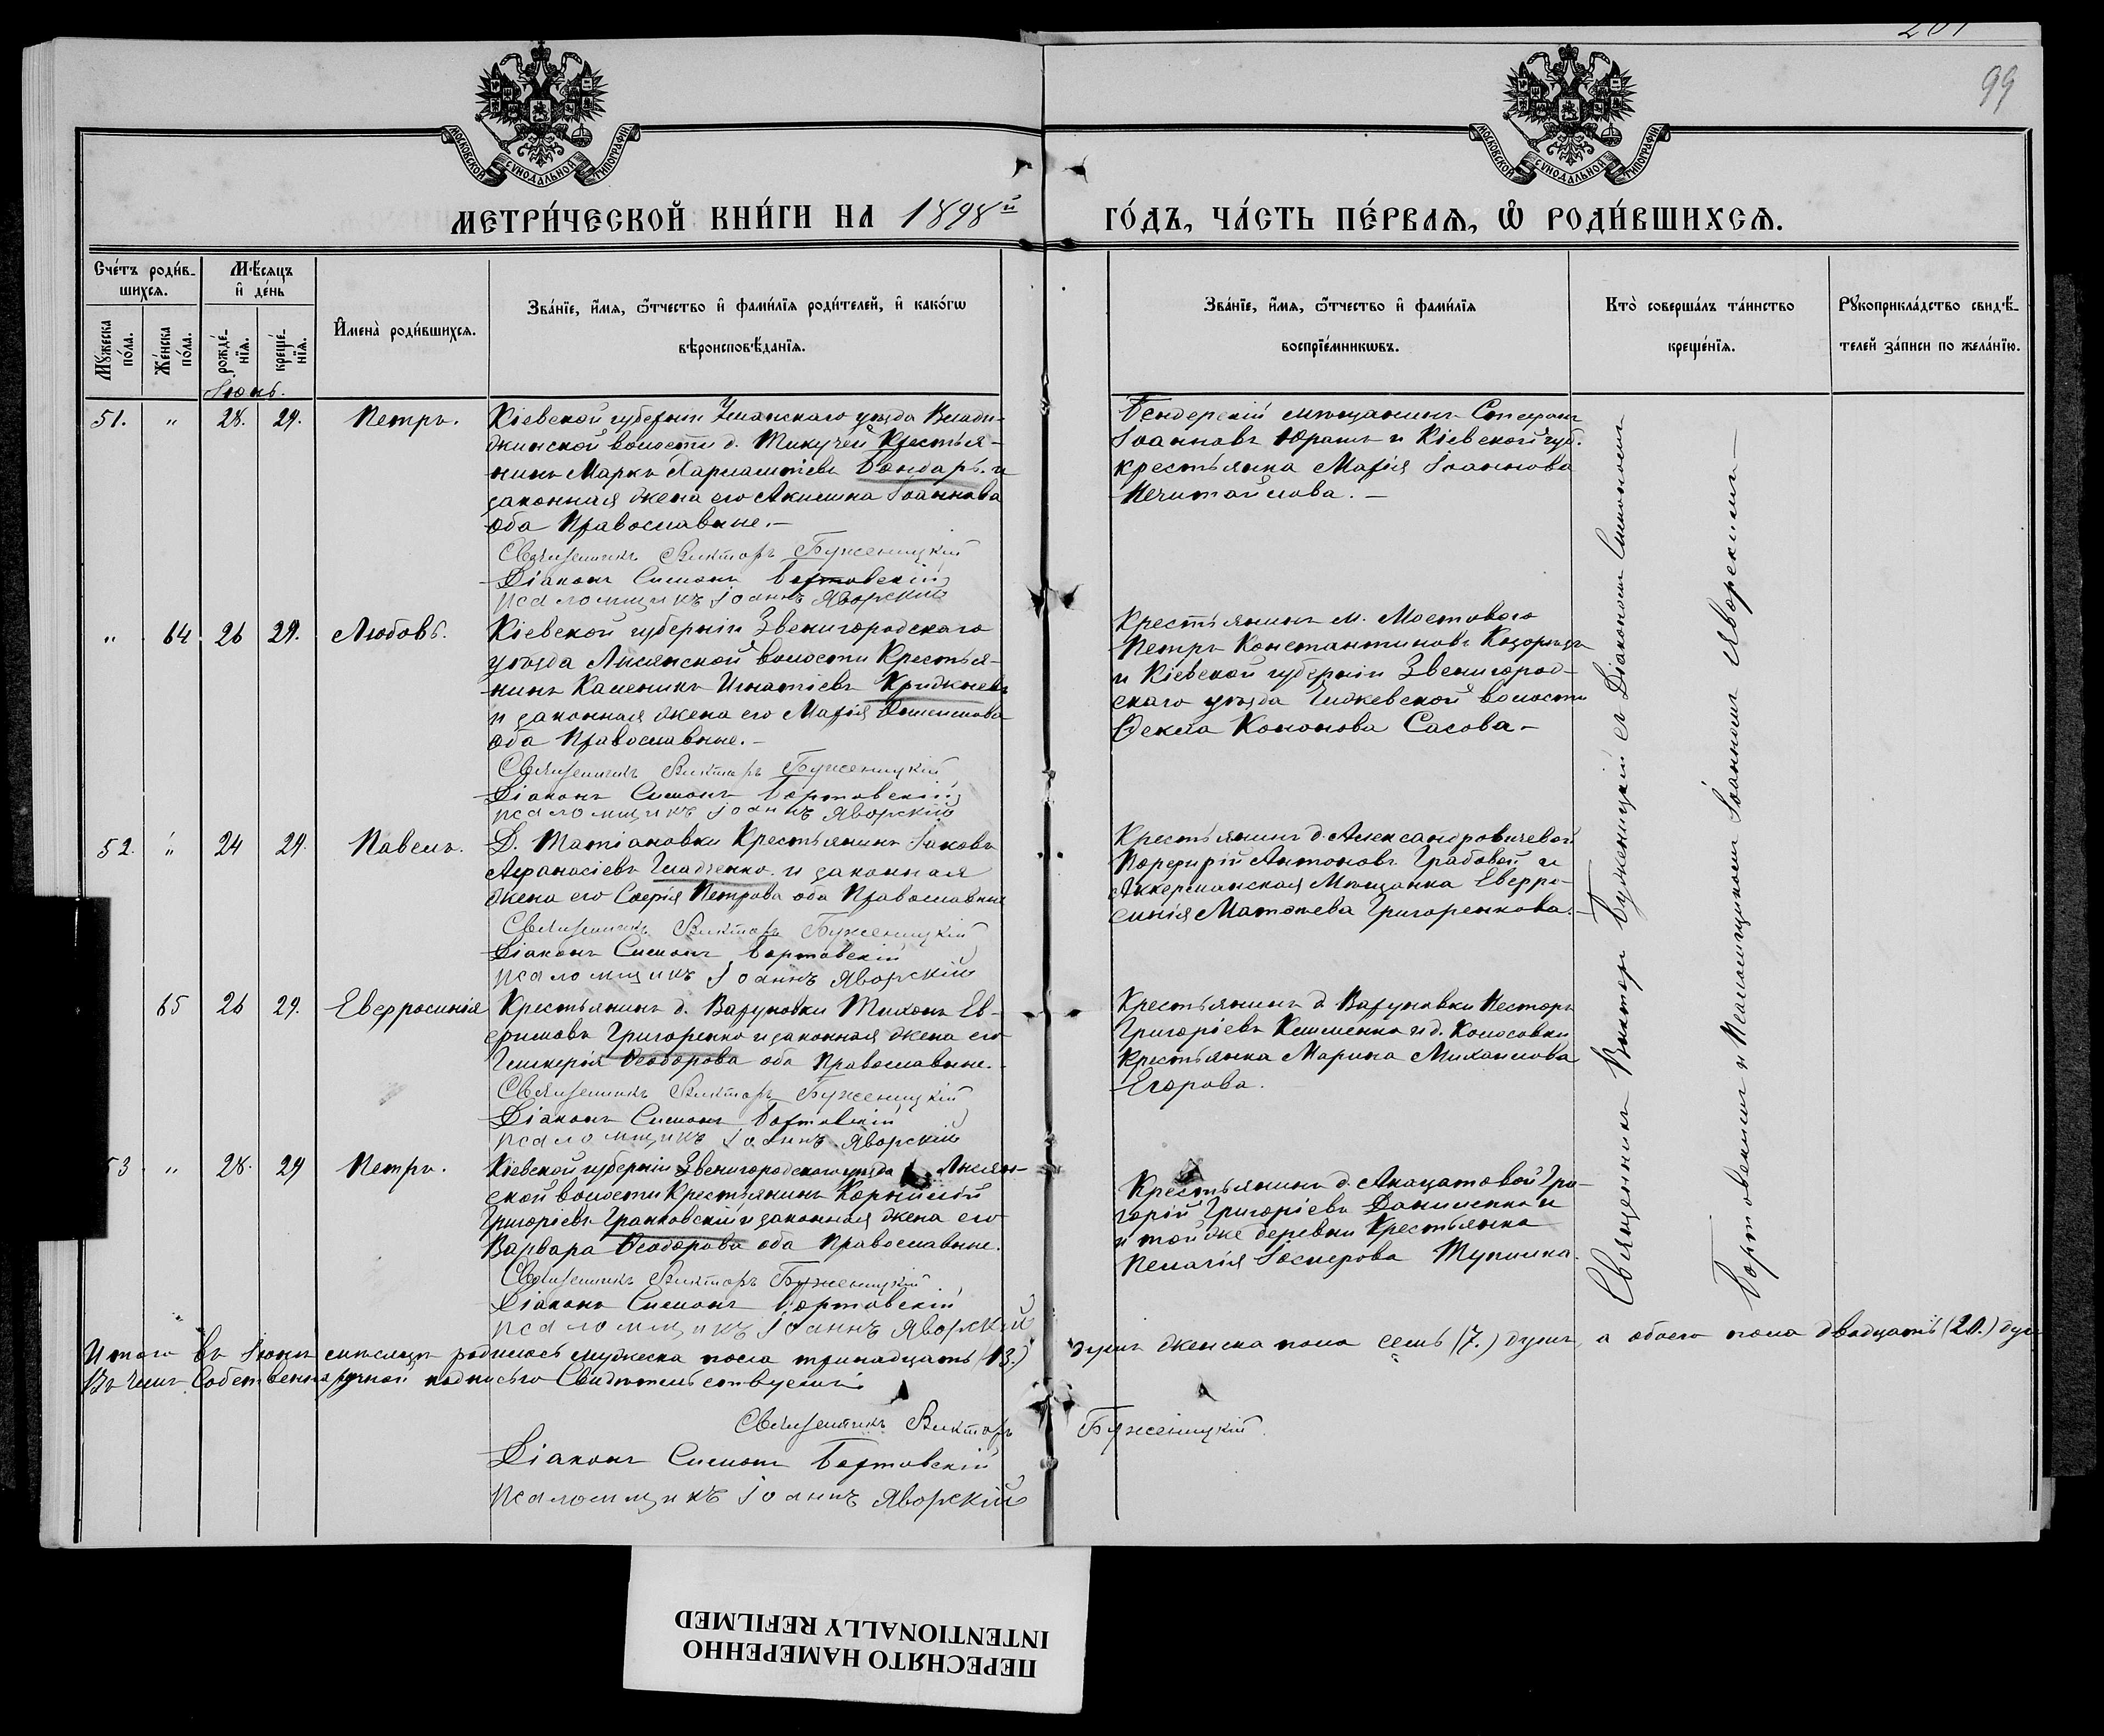 99
МОСКОВСКОЙ СѴНОДАЛЬНОЙ ТИПОГРАФІИ
МОСКОВСКОЙ СѴНОДАЛЬНОЙ ТИПОГРАФІИ
МЕТРИ́ЧЕСКОЙ КНИ́ГИ НА 1898й ГО́ДЪ, ЧА́СТЬ ПЕ́РВАѦ, Ѡ҆ РОДИ́ВШИХСѦ.
Сче́тъ роди́в-
шихсѧ.
Мꙋ́жеска по́ла.
Же́нска по́ла.
Мѣ́сѧцъ и҆ де́нь
рожде́-нїѧ.
креще́-нїѧ.
И҆мена̀ роди́вшихсѧ.
Зва́нїе, и҆́мѧ, ѻ҆́тчество и҆ фами́лїѧ роди́телей, и҆ како́гѡ
вѣроисповѣ́данїѧ.
Зва́нїе, и҆́мѧ, ѻ҆́тчество и҆ фами́лїѧ
воспрїе́мникѡвъ.
Кто̀ соверша́лъ та́инство
креще́нїѧ.
Рꙋкоприкла́дство свидѣ́-
телей за́писи по жела́нїю.
Іюнь.
51. " 28. 29. Петръ.
Кіевской губерніи Уманскаго уѣзда
волости д. Крестья-
нинъ Маркъ Бондарь и
законная жена его Акилина Іоаннова
оба Православные.–
Священникъ Викторъ Буженицкій
Діаконъ Симонъ Бортовскій
псаломщикъ Іоаннъ Яворскій
Бендерскій мѣщанинъ Стефанъ
Іоанновъ Юрашъ и Кіевской губ.
крестьянка Марія Іоаннова
Нечитайлова.–
" 64 26 29. Любовь.
Кіевской губерніи Звенигородскаго
уѣзда Лисянской волости Крестья-
нинъ Каленикъ Игнатіевъ
и законная жена его Марія Онисимова
оба Православные.–
Священникъ Викторъ Буженицкій
Діаконъ Симонъ Бортовскій
псаломщикъ Іоаннъ Яворскій
Крестьянинъ м. Мостового
Петръ Константиновъ
и Кіевской губерніи Звенигород-
скаго уѣзда волости
Ѳекла Кононова Сасова–
52. " 24 29. Павелъ.
Д. Татіановки Крестьянинъ Іаковъ
Афанасіевъ Гладченко и законная
жена его Софія Петрова оба Православные
Священникъ Викторъ Буженицкій
Діаконъ Симонъ Бортовскій
псаломщикъ Іоаннъ Яворскій
Крестьянинъ д. Александровичевой
Порфирій Антоновъ Грабовой и
Аккерманская Мѣщанка Евфро-
синія Матѳеева Григоренкова.–
65 26 29. Евфросинія
Крестьянинъ д. Варуновки Тихонъ Ев-
фимовъ Григоренко и законная жена его
Гликерія Ѳеодорова оба Православные.
Священникъ Викторъ Буженицкій
Діаконъ Симонъ Бортовскій
псаломщикъ Іоаннъ Яворскій
Крестьянинъ д. Варуновки Несторъ
Григоріевъ и д. Колосовки
Крестьянка Марина Михаилова
Егорова.
53 " 28. 29 Петръ.
Кіевской губерніи Звенигородскаго уѣзда Лисян-
ской волости Крестьянинъ Корнилій
Григоріевъ Грановскій и законная жена его
Варвара Ѳеодорова оба Православные.
Священникъ Викторъ Буженицкій
Діаконъ Симонъ Бортовскій
псаломщикъ Іоаннъ Яворскій
Крестьянинъ д. Акацатовой Гри-
горій Григоріевъ Даниленко и
и той же деревни Крестьянка
Пелагія Тупилка.
Священникъ Викторъ Буженицкій съ Діакономъ Симономъ
Бортовскимъ и Псаломщикомъ Іоанномъ Яворскимъ–
Итого въ Іюнѣ мѣсяцѣ родилось мужеска пола тринадцать (13.) душъ женска пола семь (7.) душъ, а обоего пола двадцать (20.) душ
Въ чемъ собственноручной подписью Свидѣтельствуемъ:
Священникъ Викторъ Буженицкій.
Діаконъ Симонъ Бортовскій
псаломщикъ Іоаннъ Яворскій
ПЕРЕСНЯТО НАМЕРЕННО
INTENTIONALLY REFILMED